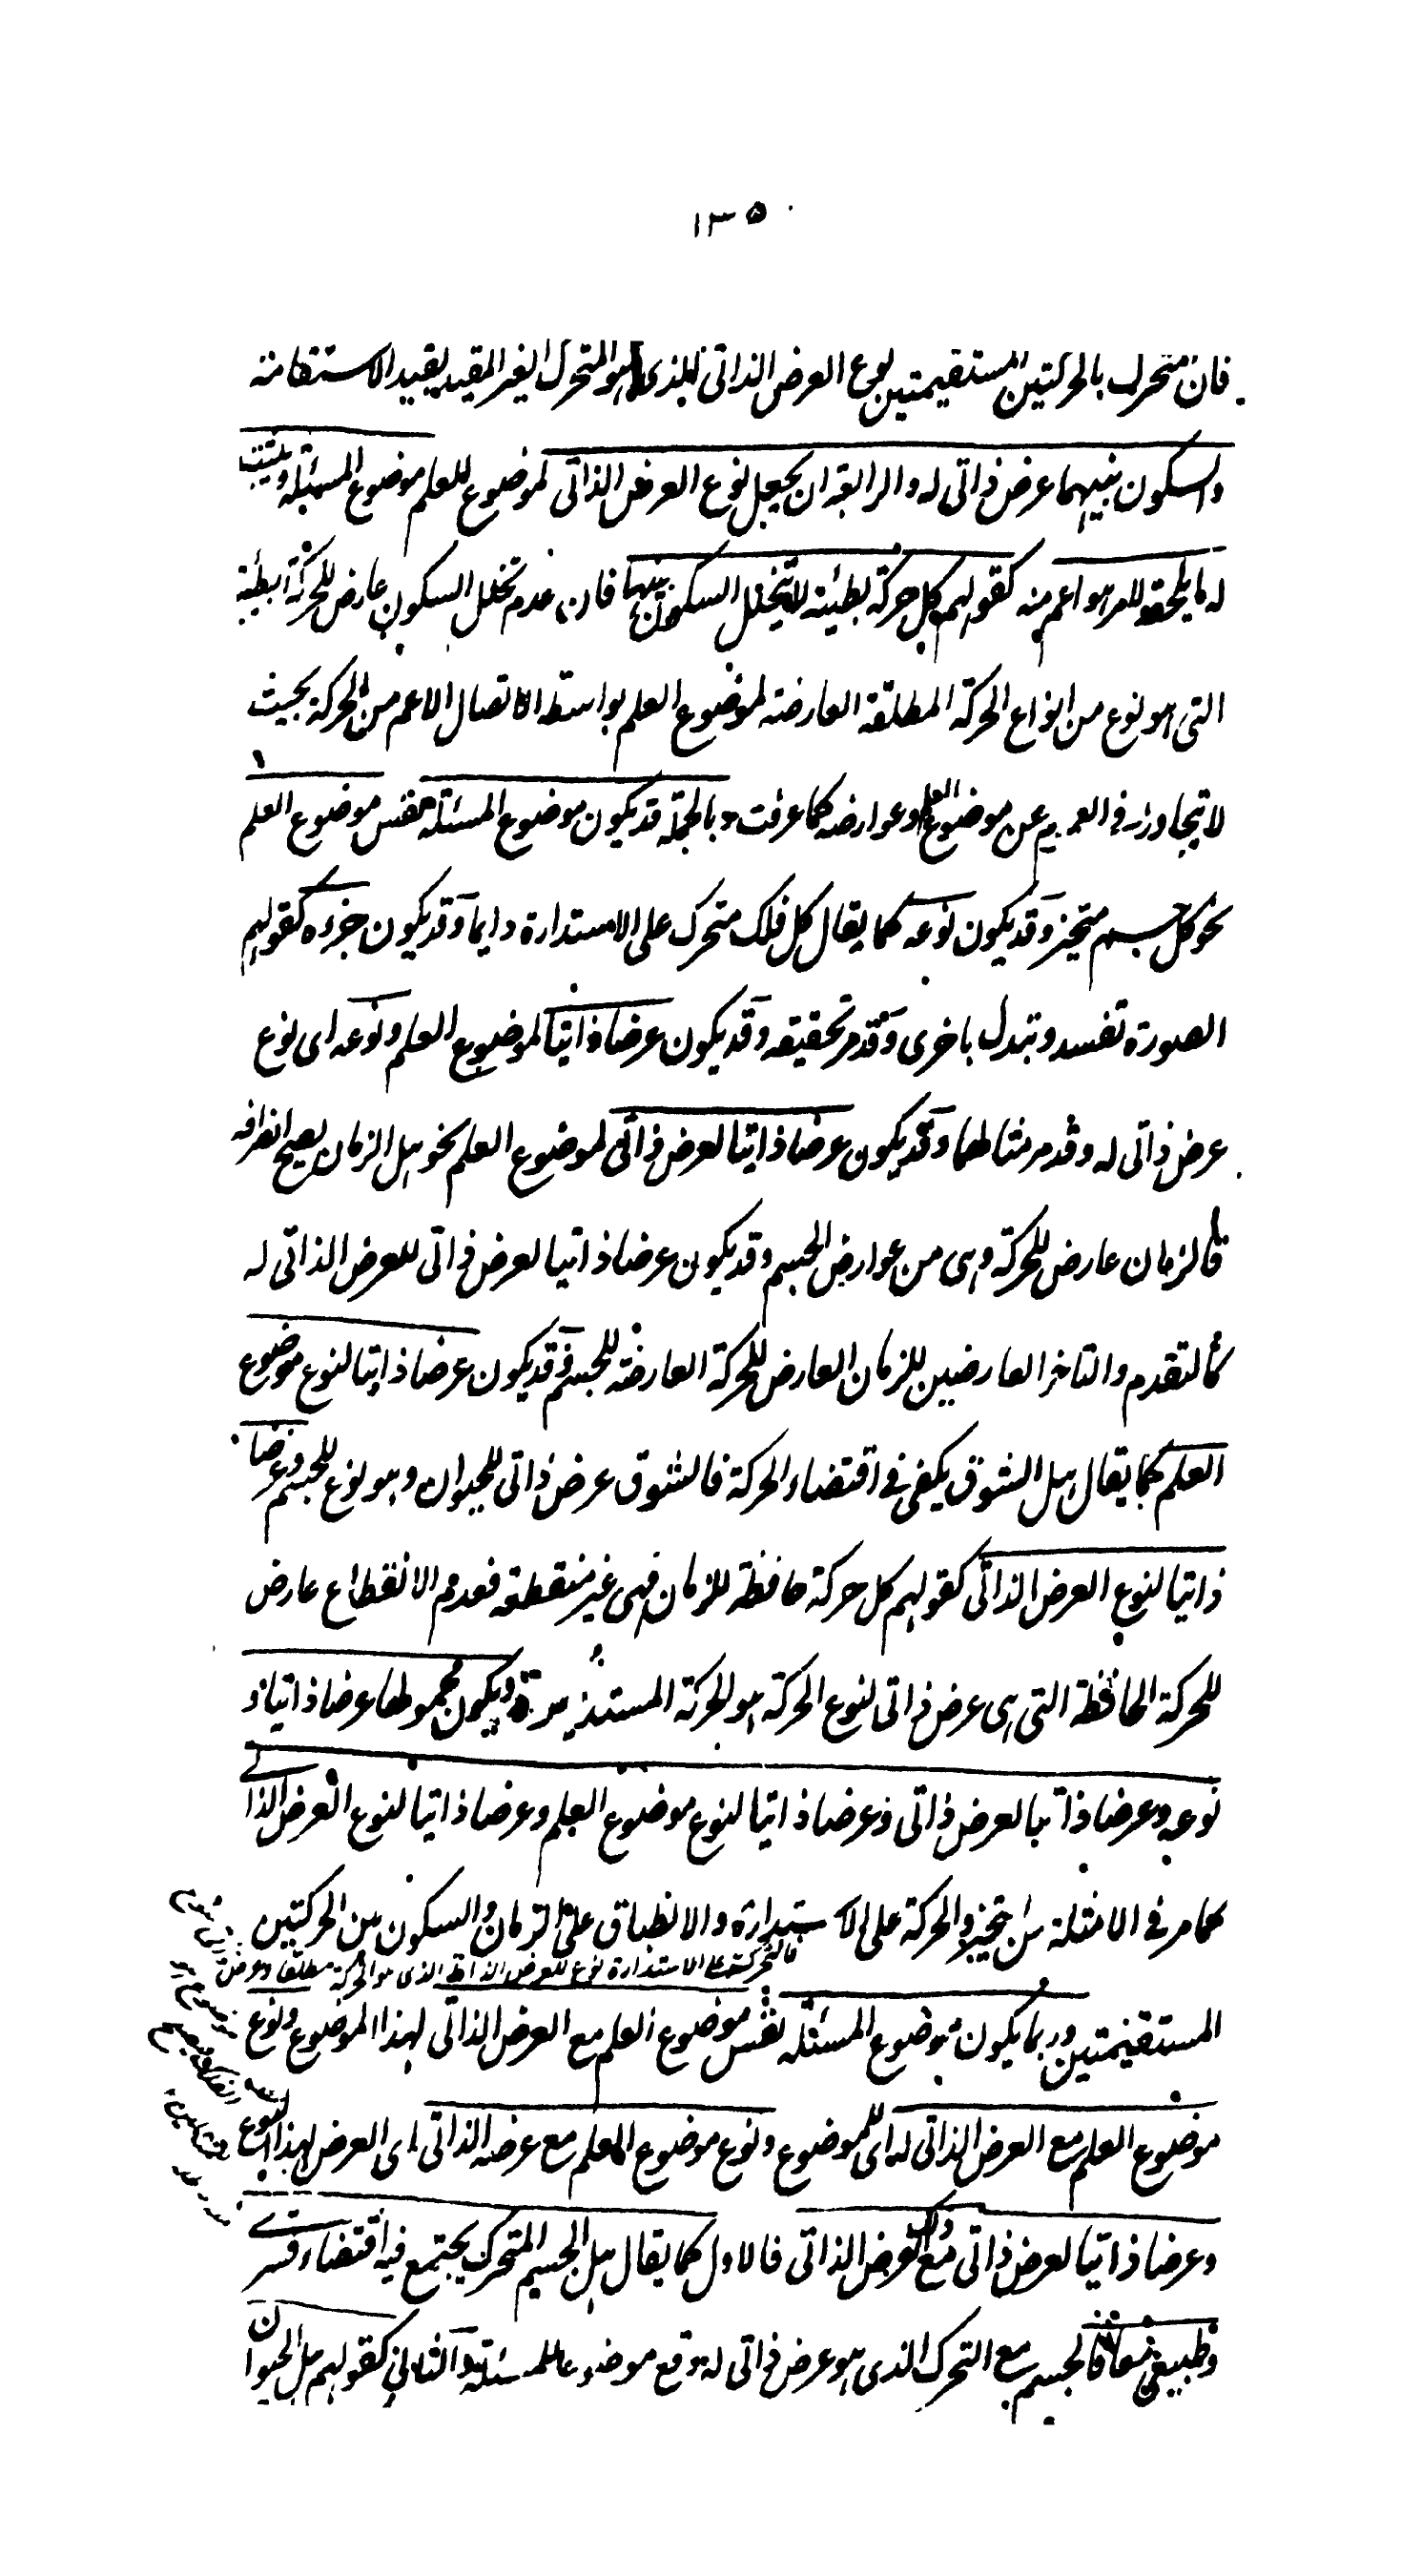 ١٣٥
فان متحرك بالحركتين المستقيمتين نوع العرض الذاتى للذى هو المتحرك الغير المقيد بقيد الاستقامة
والسكون بينهما عرض ذاتى له والرابعة ان يجعل نوع العرض الذاتى لموضوع للعلم موضوع المسئلة ويثبت
له ما يلحقه لامر هو اعم منه كقولهم كل حركة بطيئة لا يتخلل السكون بينها فان عدم تخلل السكون عارض للحركة البطيئة
التى هو نوع من انواع الحركة المطلقة العارضة لموضوع العلم بواسطة الاتصال الاعم من الحركة بحيث
لا يتجاوز فى العموم عن موضوع العلم وعوارضه كما عرفت وبالجملة قد يكون موضوع المسئلة نفس موضوع العلم
نحو كل جسم متحيز وقد يكون نوعه كما يقال كل فلك متحرك على الاستدارة دايما وقد يكون جزءه كقولهم
الصورة تفسد وتبدل باخرى وقد مر تحقيقه وقد يكون عرضا ذاتيا لموضوع العلم ونوعه اى نوع
عرض ذاتى له وقد مر مثالهما وقد يكون عرضا ذاتيا لعرض ذاتى لموضوع العلم نحو هل الزمان يصح انصرافه
فالزمان عارض للحركة وهى من عوارض الجسم وقد يكون عرضا ذاتيا لعرض ذاتى للعرض الذاتى له
كالتقدم والتاخر العارضين للزمان العارض للحركة العارضة للجسم وقد يكون عرضا ذاتيا لنوع موضوع
العلم كما يقال هل الشوق يكفى فى اقتضاء الحركة فالشوق عرض ذاتى للحيوان وهو نوع للجسم وعرضا
ذاتيا لنوع العرض الذاتى كقولهم كل حركة حافظة للزمان فهى غير منقطعة فعدم الانقطاع عارض
للحركة الحافظة التى هى عرض ذاتى لنوع الحركة هو للحركة المستديرة ويكون محمولها عرضا ذاتيا و
نوعه وعرضا ذاتيا لعرض ذاتى وعرضا ذاتيا لنوع موضوع العلم وعرضا ذاتيا لنوع العرض الذاتى
كما مر فى الامثلة من التحيز والحركة على الاستدارة والانطباق على الزمان والسكون بين الحركتين
فالتحرك على الاستدارة نوع للعرض الذاتى الذى هو الحركة مطلقا وعرض
المستقيمتين وربما يكون موضوع المسئلة نفس موضوع العلم مع العرض الذاتى لهذا الموضوع ونوع
موضوع العلم مع العرض الذاتى له اى للموضوع ونوع موضوع العلم مع عرضه الذاتى اى العرض لهذا النوع
وعرضا ذاتيا لعرض ذاتى مع ذلك العرض الذاتى فالاول كما يقال هل الجسم المتحرك يجتمع فيه اقتضاء قسرى
وطبيعى معا فالجسم مع التحرك الذى هو عرض ذاتى له وقع موضوعا للمسئلة والثانى كقولهم هل الحيوان